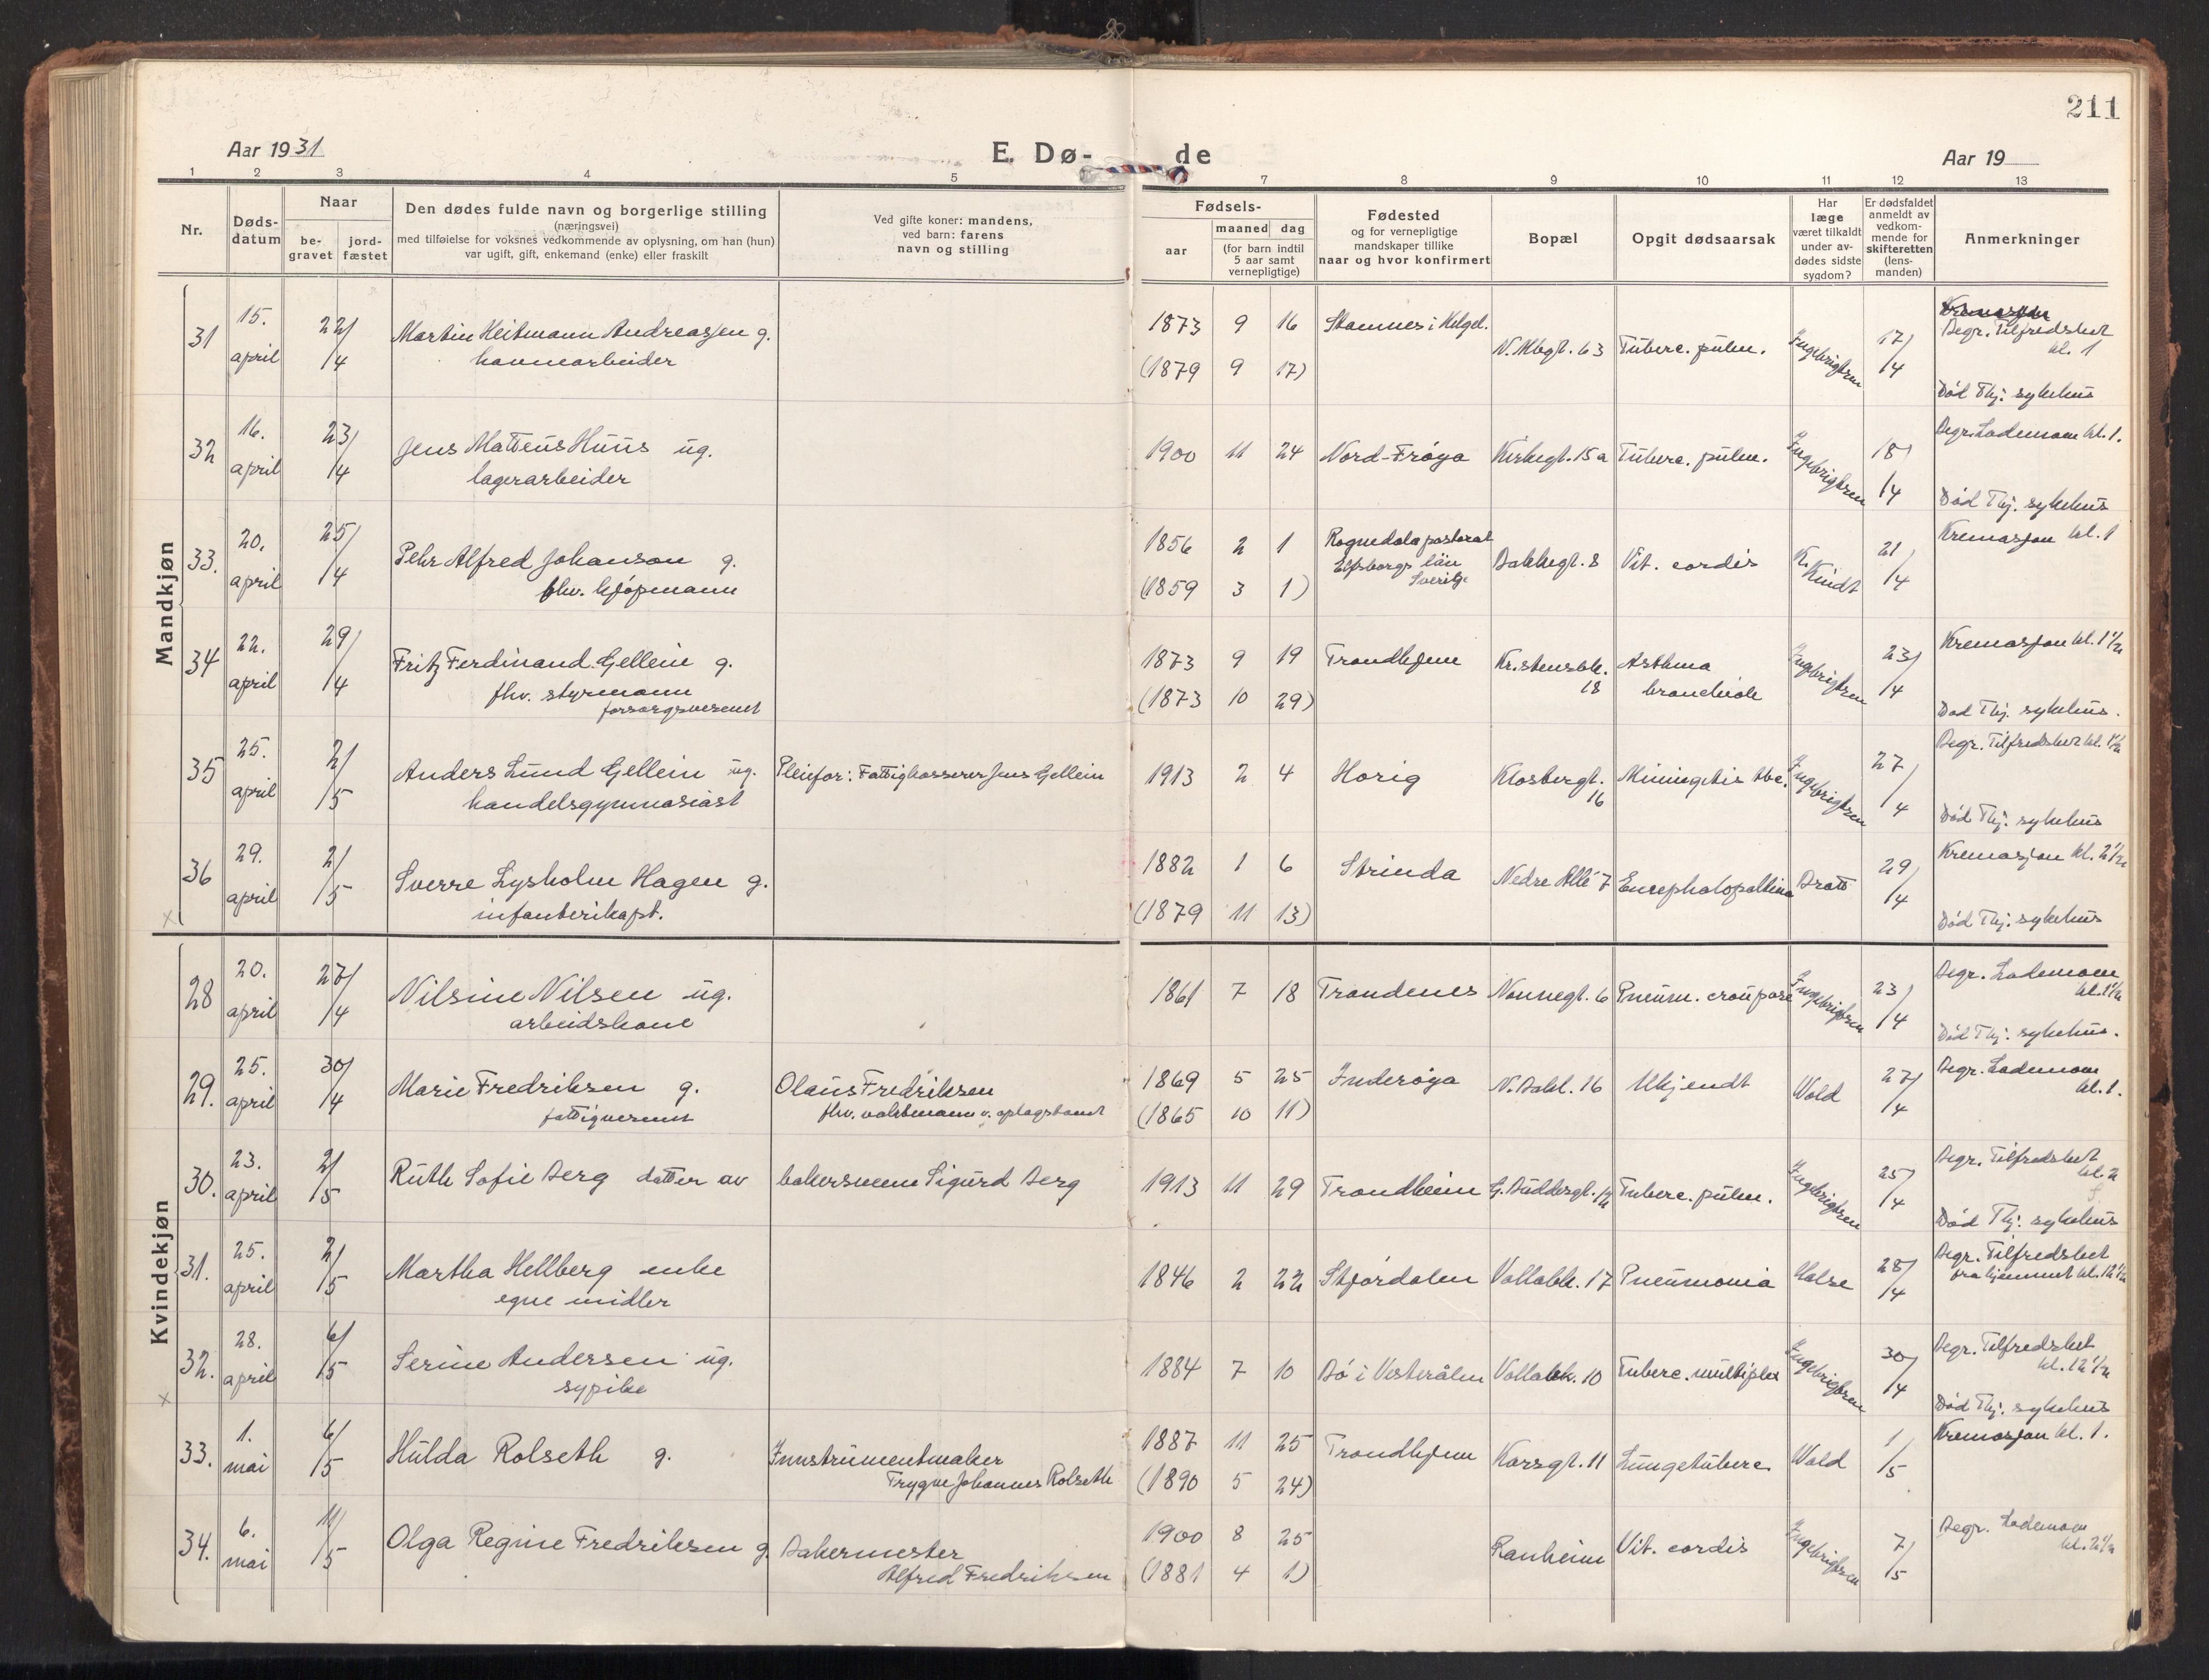 211
Aar 1931
E. Dø-
de
Aar 19
1 2 3 4 5 7 8 9 10 11 12 13
Nr.
Døds-
datum
Naar
be-
gravet
jord-
fæstet
Den dødes fulde navn og borgerlige stilling
(næringsvei)
med tilføielse for voksnes vedkommende av oplysning, om han (hun)
var ugift, gift, enkemand (enke) eller fraskilt
Ved gifte koner: mandens,
ved barn: farens
navn og stilling
Fødsels-
aar
maaned dag
(for barn indtil
5 aar samt
vernepligtige)
Fødested
og for vernepligtige
mandskaper tillike
naar og hvor konfirmert
Bopæl
Opgit dødsaarsak
Har
læge
været tilkaldt
under av-
dødes sidste
sygdom?
Er dødsfaldet
anmeldt av
vedkom-
mende for
skifteretten
(lens-
manden)
Anmerkninger
Mandkjøn
31
15.
april
22/
/4
Martin Heitmann Andreassen g.
havnearbeider
1873 9 16
(1879 9 17)
Stamnes i Helgel.
N. Allegt. 63
Tuberc. pulm.
Ingebrigtsen
17/
/4
Kremasjon
Begr. Tilfredshet
kl. 1
Død Thj. sykehus
32
16.
april
23/
/4
Jens Matteus Huus ug.
lagerarbeider
1900 11 24
Nord-Frøya
Kirkegt. 15a
Tuberc. pulm.
Ingebrigtsen
18/
/4
Begr. Lademoen kl. 1.
Død Thj. sykehus
33.
20.
april
25/
/4
Pehr Alfred Johanson g.
fhv. kjøpmann
1856 2 1
(1859 3 1)
Rognedala pastorat
Elfsborgs län
Sverige
Bakkegt. 8
Vit. cordis
K. Kindt
21/
/4
Kremasjon kl. 1
34
22.
april
29/
/4
Fritz Ferdinand Gellein g.
fhv. styrmann
forsorgsvesenet
1873 9 19
(1873 10 29)
Trondhjem
Kr.stensbk.
18
Asthma
bronchiale
Ingebrigtsen
23/
/4
Kremasjon kl. 1 1/2
Død Thj. sykehus.
35
25.
april
2/
/5
Anders Lund Gellein ug.
handelsgymnasiast
Pleiefar: Fattigkasserer Jens Gellein
1913 2 4
Horig
Klosbergt.
16
Miningitis tbc.
Ingebrigtsen
27/
/4
Begr. Tilfredshet kl. 1 1/2
Død Thj. sykehus
36
29.
april
2/
/5
Sverre Lysholm Hagen g.
infanterikapt.
1882 1 6
(1879 11 13)
Strinda
Nedre Allé 7
Encephalopathia
Bratt
29/
/4
Kremasjon kl. 2 1/2
Død Thj. sykehus
Kvindekjøn
28
20.
april
27/
/4
Nilsine Nilsen ug.
arbeidskone
1861 7 18
Trondenes
Nonnegt. 6
Pneum. croupose
Ingebrigtsen
23/
/4
Begr. Lademoen
kl. 1 1/2
Død Thj. sykehus.
29.
25.
april
30/
/4
Marie Fredriksen g.
fattigvesenet
Olaus Fredriksen
fhv. vaktmann v. oplagstomt
1869 5 25
(1865 10 11)
Inderøya
N. Bakl. 16
Ukjendt
Wold
27/
/4
Begr. Lademoen
kl. 1.
30.
23.
april
2/
/5
Ruth Sofie Berg datter av
bakersvenn Sigurd Berg
1913 11 29
Trondheim
G. Buddesgt. 12
Tuberc. pulm.
Ingebrigtsen
25/
/4
Begr. Tilfredshet
kl. 2
Død Thj. sykehus
31.
25.
april
2/
/5
Martha Hellberg enke
egne midler
1846 2 22
Stjørdalen
Vollabk. 17
Pneumonia
Halse
28/
/4
Begr. Tilfredshet
fra hjemmet kl. 12 1/2
32.
28.
april
6/
/5
Serine Andersen ug.
sypike
1884 7 10
Bø i Vesterålen
Vollabk. 10
Tuberc. multiplex
Ingebrigtsen
30/
/4
Begr. Tilfredshet
kl. 12 1/2
Død Thj. sykehus
33.
1.
mai
6/
/5
Hulda Rolseth g.
Innstrumentmaker
Trygve Johannes Rolseth
1887 11 25
(1890 5 24)
Trondhjem
Korsgt. 11
Lungetuberc.
Wold
1/
/5
Kremasjon kl. 1.
34.
6.
mai
11/
/5
Olga Regine Fredriksen g.
Bakermester
Alfred Fredriksen
1900 8 25
(1881 4 1)
Ranheim
Vit. cordis
Ingebrigtsen
7/
/5
Begr. Lademoen
kl. 2 1/2